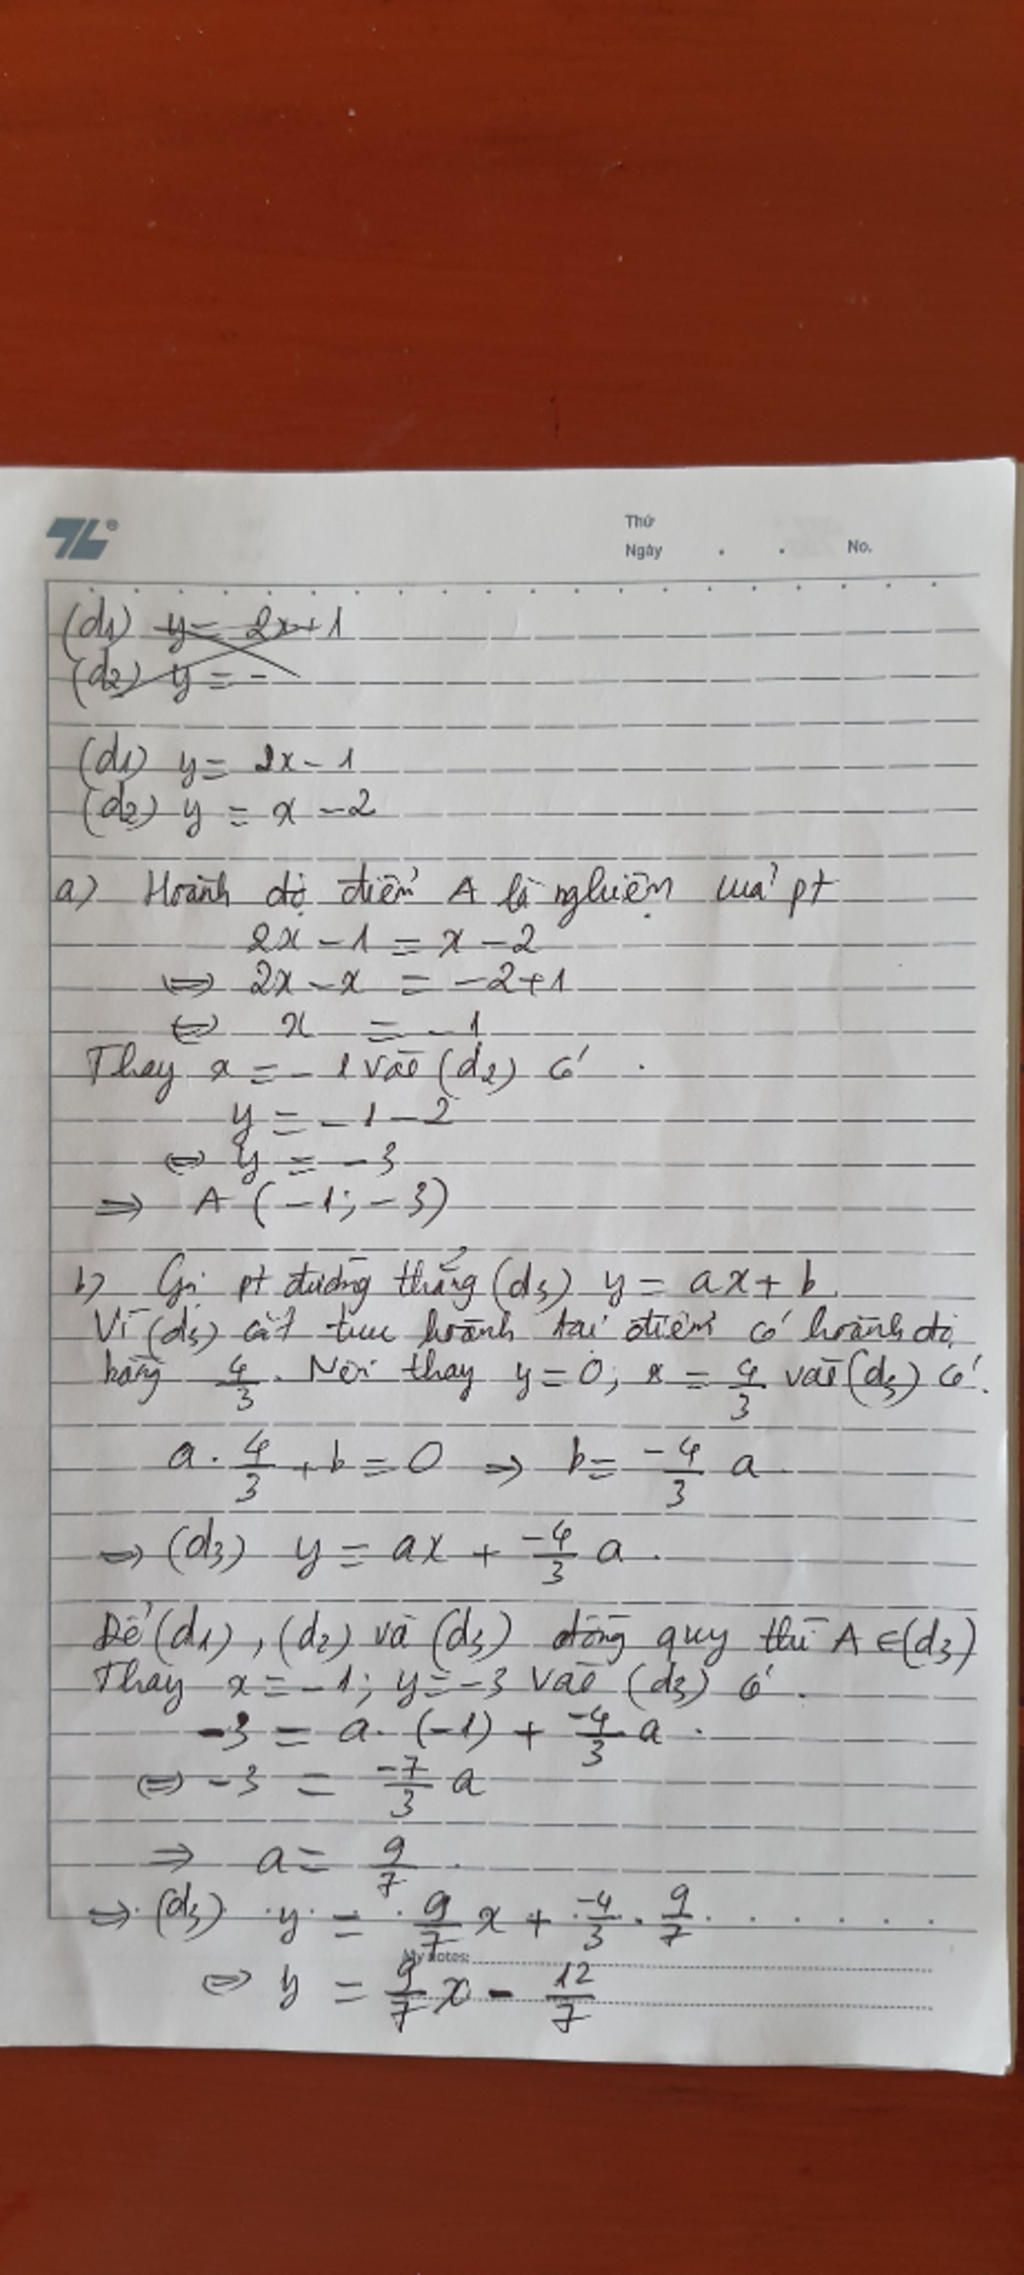 TL®
Thứ
Ngày . . No.
(d1) y = 2x+1
(d2) y = -
(d1) y = 2x - 1
(d2) y = x - 2
a) Hoành độ điểm A là nghiệm của pt
2x - 1 = x - 2
⇔ 2x - x = -2+1
⇔ x = -1
Thay x = -1 vào (d2) có
y = -1 - 2
⇔ y = -3
⇒ A (-1; -3)
b) Gọi pt đường thẳng (d3) y = ax + b.
Vì (d3) cắt trục hoành tại điểm có hoành độ
bằng 4/3. Nên thay y = 0; x = 4/3 vào (d3) có.
a . 4/3 + b = 0 ⇒ b = -4/3 a
⇒ (d3) y = ax + -4/3 a.
Để (d1), (d2) và (d3) đồng quy thì A ∈ (d3)
Thay x = -1; y = -3 vào (d3) có.
-3 = a. (-1) + -4/3 a.
⇔ -3 = -7/3 a
⇒ a = 9/7.
⇒ (d3) y = 9/7 x + -4/3 . 9/7
My notes:
⇔ y = 9/7 x - 12/7